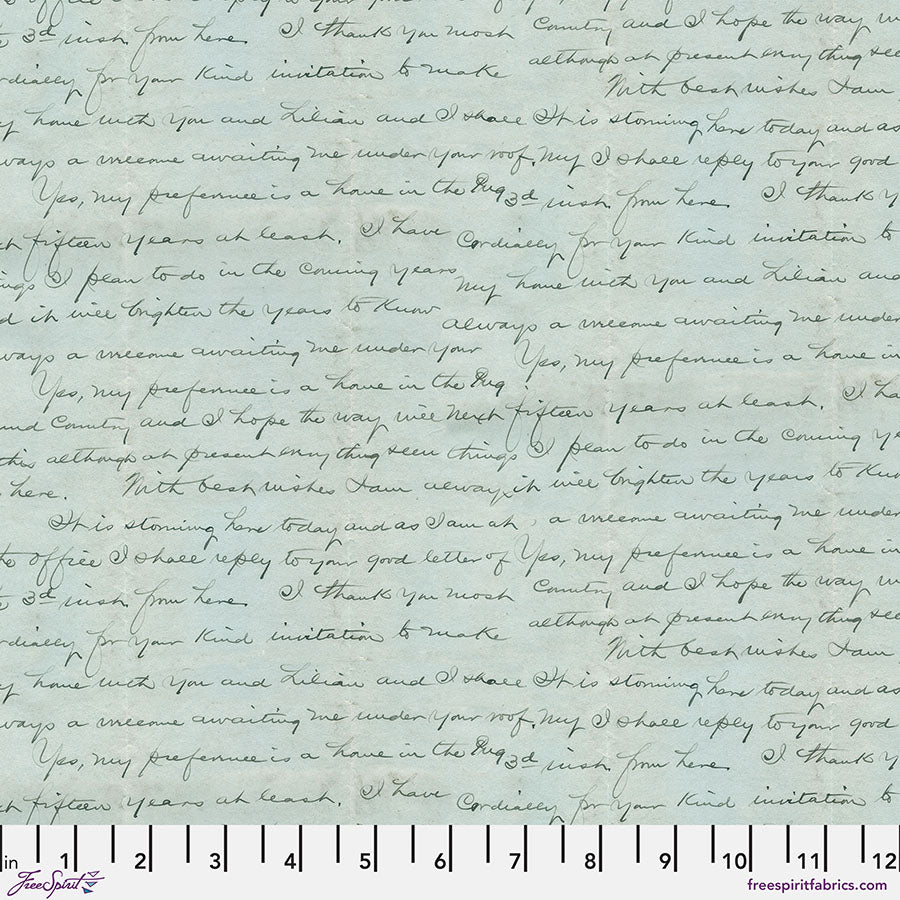 3d inst. from here. I thank you most Country and I hope the way
cordially for your kind invitation to make although at present everything
With best wishes I am
home with you and Lilian and I shall It is storming here today and as
always a welcome awaiting me under your roof. My I shall reply to your good
Yes, my preference is a home in the Pug 3d inst. from here. I thank
fifteen years at least. I have Cordially for your kind invitation to
things I plan to do in the coming years My home with you and Lilian and
it will brighten the years to know always a welcome awaiting me under
always a welcome awaiting me under your Yes, my preference is a home in
Yes, my preference is a home in the Pug
and Country and I hope the way will next fifteen years at least. I
this although at present everything seem things I plan to do in the coming
here. With best wishes I am always it will brighten the years to know
It is storming here today and as I am at, a welcome awaiting me under
the office I shall reply to your good letter of Yes, my preference is a home in
3d inst. from here. I thank you most Country and I hope the way
cordially for your kind invitation to make although at present everything
With best wishes I am
home with you and Lilian and I shall It is storming here today and as
always a welcome awaiting me under your roof. My I shall reply to your good
Yes, my preference is a home in the Pug 3d inst. from here. I thank
fifteen years at least. I have Cordially for your kind invitation to
in 1 2 3 4 5 6 7 8 9 10 11 12
FreeSpirit freespiritfabrics.com